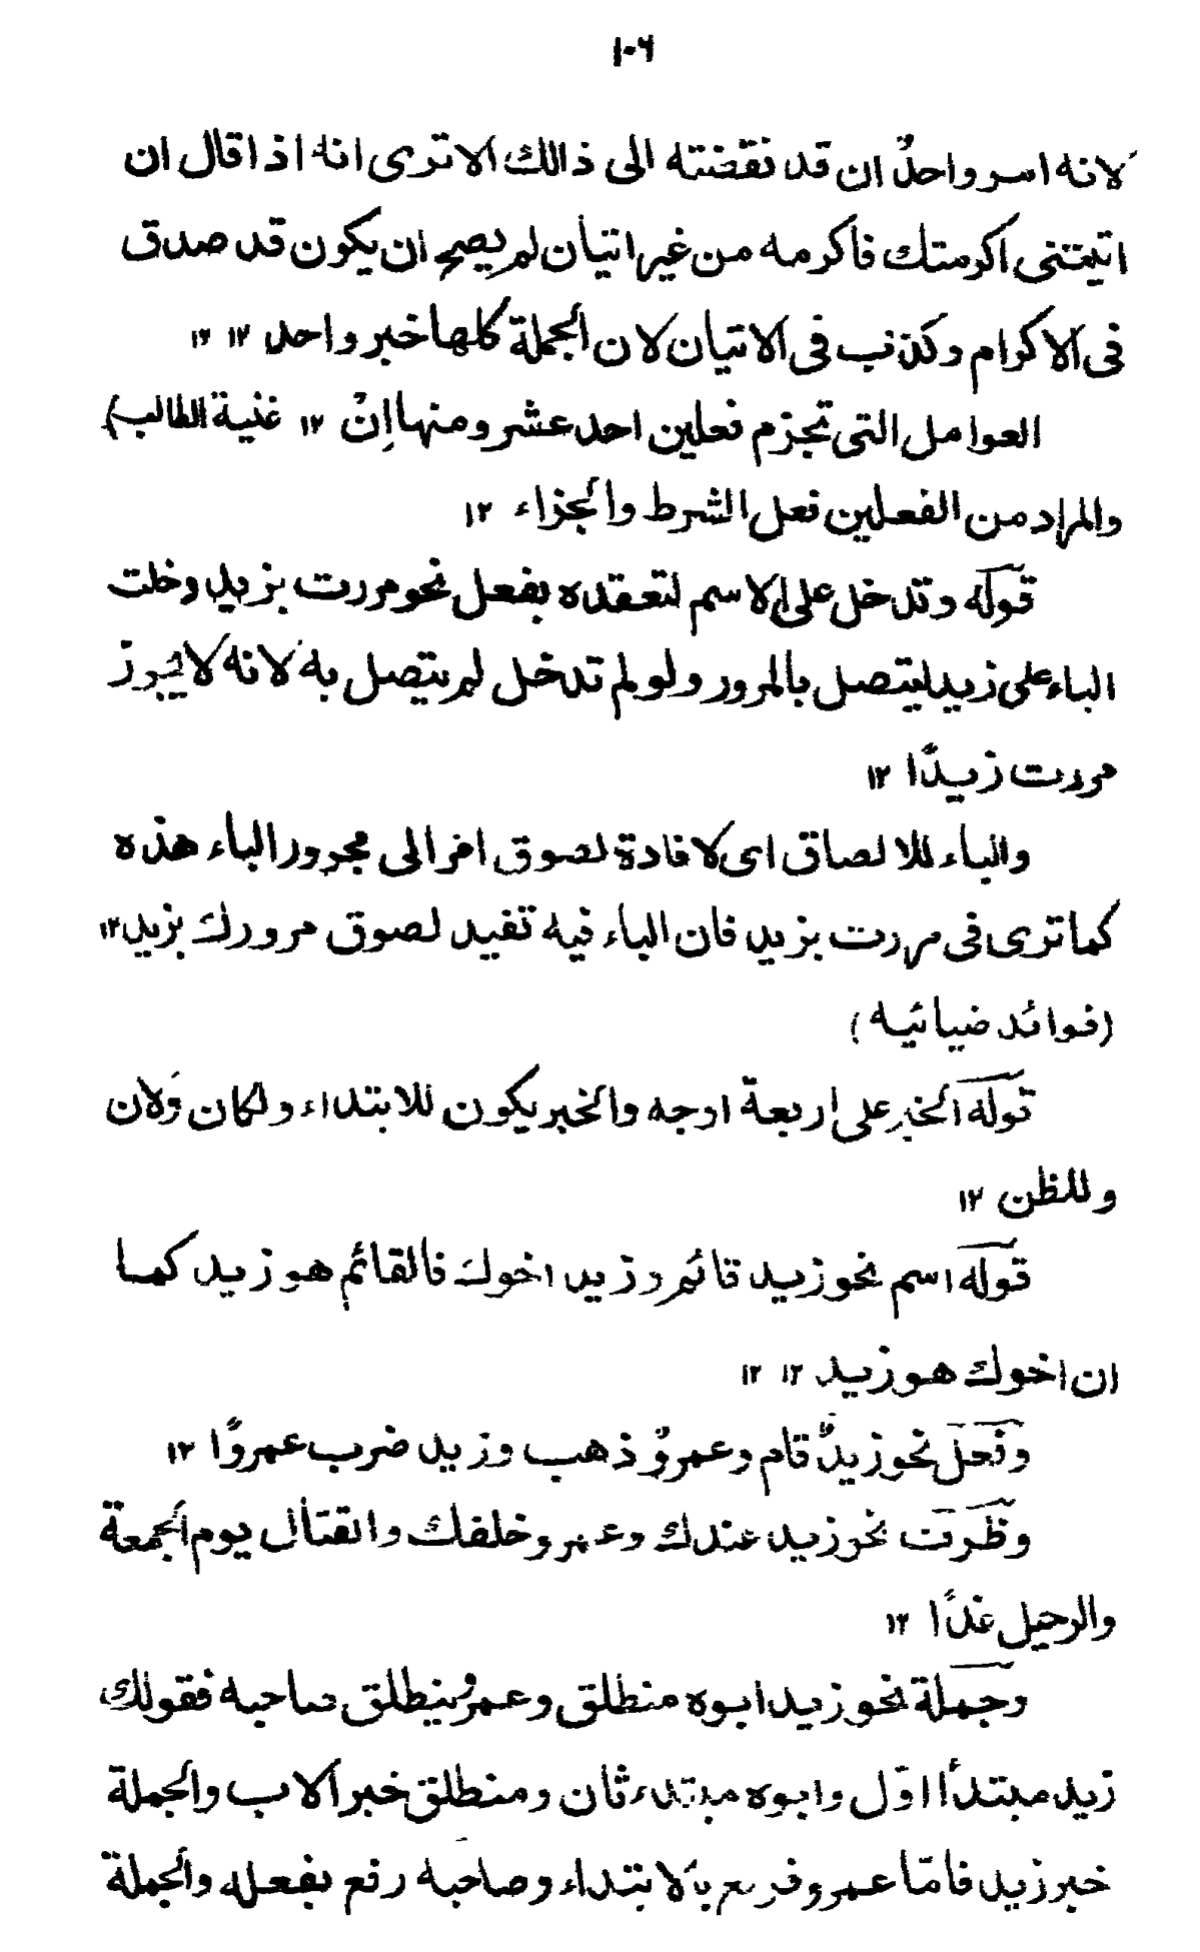 ١٠٦
لانه اسر واحدٌ ان قد نقضته الى ذالك الا ترى انه اذا قال ان
اتيتنى اكرمتك فاكرمه من غير اتيان لم يصح ان يكون قد صدق
فى الاكرام وكذب فى الاتيان لان الجملة كلها خبر واحد ١٢ ١٢
العوامل التى تجزم فعلين احد عشر ومنها اِنْ ١٢ غنية الطالب)
والمراد من الفعلين فعل الشرط والجزاء ١٢
قوله وتدخل على الاسم لتعقده بفعل نحو مررت بزيد دخلت
الباء على زيد ليتصل بالمرور ولو لم تدخل لم يتصل به لانه لا يجوز
مررت زيدًا ١٢
والباء للالصاق اى لافادة لصوق امر الى مجرور الباء هذه
كما ترى فى مررت بزيد فان الباء فيه تفيد لصوق مرورك بزيد ١٢
(فوائد ضيائيه)
قوله الخبر على اربعة اوجه والخبر يكون للابتداء ولكان ولان
وللظن ١٢
قوله اسم نحو زيد قائم وزيد اخوك فالقائم هو زيد كما
ان اخوك هو زيد ١٢ ١٢
وفعل نحو زيدٌ قام وعمروٌ ذهب وزيد ضرب عمروًا ١٢
وظرف نحو زيد عندك وعمرو خلفك والقتال يوم الجمعة
والرحيل غدًا ١٢
وجملة نحو زيد ابوه منطلق وعمروٌ ينطلق صاحبه فقولك
زيد مبتدأ اوّل وابوه مبتدء ثان ومنطلق خبر الاب والجملة
خبر زيد فامّا عمرو فرفع بالابتداء وصاحبه رفع بفعله والجملة